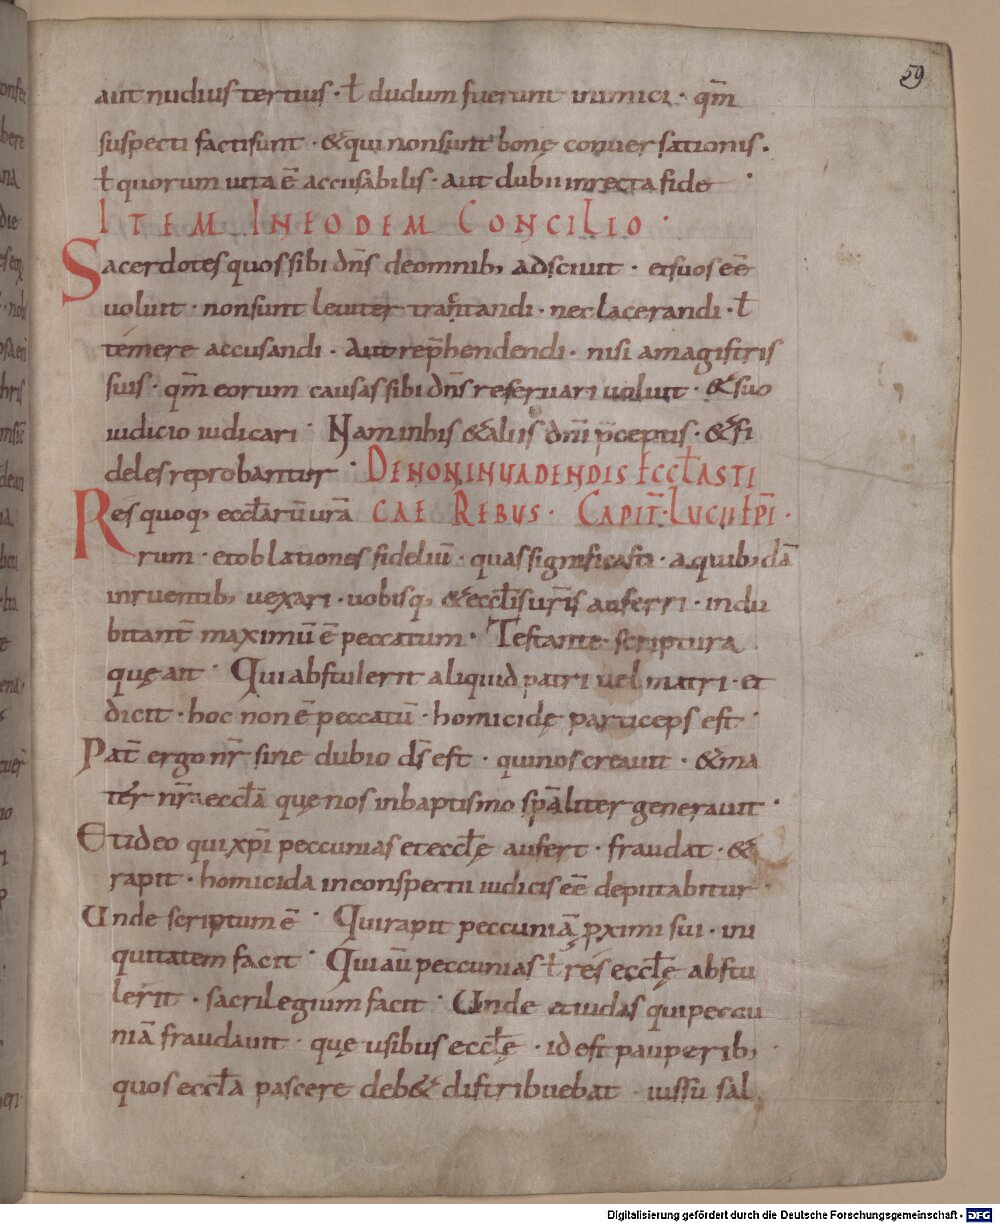 59
aut nudius tertius · ł dudum fuerunt inimici · qm̄
suspecti facti sunt · & qui non sunt bonę conuersationis .
ł quorum uita ē accusabilis · aut dubii in recta fide ·
ITEM IN EODEM CONCILIO ·
Sacerdotes quos sibi dn̄s de omnib; adsciuit · et suos eē
uoluit · non sunt leuiter tractandi · nec lacerandi · ł
temere accusandi · Aut rep̄hendendi · nisi a magistris
suis · qm̄ eorum causas sibi dn̄s reseruari uoluit · & suo
iudicio iudicari · Nam in his & aliis dn̄i p̄ceptis · & fi
deles reprobantur · DE NON INUADENDIS ECCŁASTI
Res quoq; eccłarū urā CAE REBUS · CAPIT̄ · LUCII EPĪ ·
rum · et oblationes fideliū · quas significastis · a quib;dā
inruentib; uexari · uobisq; & eccłis ur̄is auferri · indu
bitant̄ maximū ē peccatum · Testante scriptura
quę ait · Qui abstulerit aliquid patri uel matri · et
dicit · hoc non ē peccatū · homicidę particeps est ·
Pat̄ ergo nr̄ sine dubio ds̄ est · qui nos creauit · & ma
ter nr̄a eccła quę nos in baptismo sp̄aliter generauit ·
Et ideo qui xp̄i peccunias et eccłę aufert · fraudat · &
rapit · homicida in conspectu iudicis eē deputabitur ·
Unde scriptum ē · Qui rapit peccuniā p̱ximi sui · ini
quitatem facit · Qui aū peccunias ł res eccłę abstu
lerit · sacrilegium facit · Unde et iudas qui peccu
niā fraudauit · quę usibus eccłę · id est pauperib; ·
quos eccła pascere deb& distribuebat · iussu sal
Digitalisierung gefördert durch die Deutsche Forschungsgemeinschaft - DFG